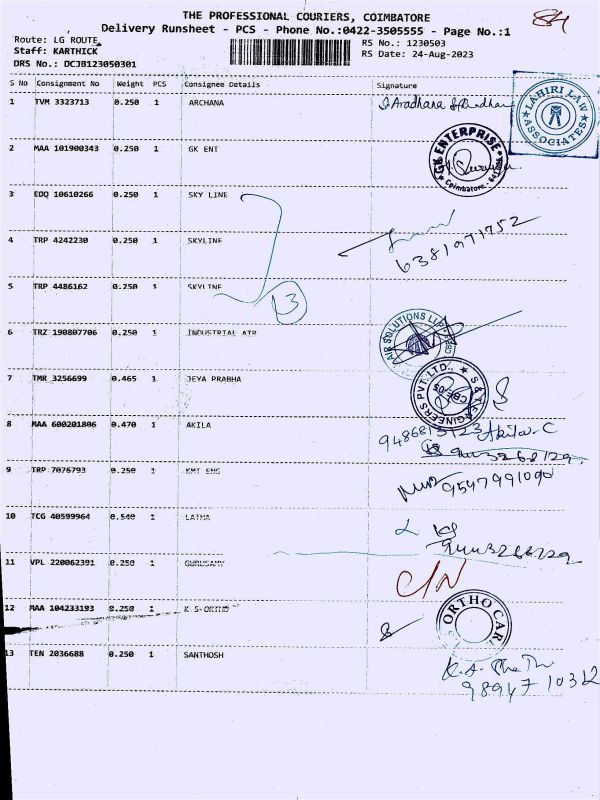 THE PROFESSIONAL COURIERS, COIMBATORE
84
Delivery Runsheet - PCS - Phone No.:0422-3505555 - Page No.:1
Route: LG ROUTE
RS No.: 1230503
Staff: KARTHICK
RS Date: 24-Aug-2023
DRS No.: DCJB123050301
S No Consignment No Weight PCS Consignee Details Signature
1 TVM 3323713 0.250 1 ARCHANA
LAHIRI LAW ASSOCIATES
2 MAA 101900343 0.250 1 GK ENT
GK ENTERPRISE
Coimbatore
3 EDQ 10610266 0.250 1 SKY LINE
4 TRP 4242230 0.250 1 SKYLINE
6381971752
5 TRP 4486162 0.250 1 SKYLINE
13
6 TRZ 190807706 0.250 1 INDUSTRIAL AIR
AIR SOLUTIONS LLP
7 TMR 3256699 0.465 1 JEYA PRABHA
ENGINEERS PVT. LTD.
8 MAA 600201806 0.470 1 AKILA
Akila-C
9 TRP 7076793 0.250 1 KMT ENG
9547991090
10 TCG 40599964 0.540 1 LATHA
11 VPL 220062391 0.250 1 GURUSAMY
C/N
12 MAA 104233193 0.250 1 K S-ORTHO
ORTHO CAR
13 TEN 2036688 0.250 1 SANTHOSH